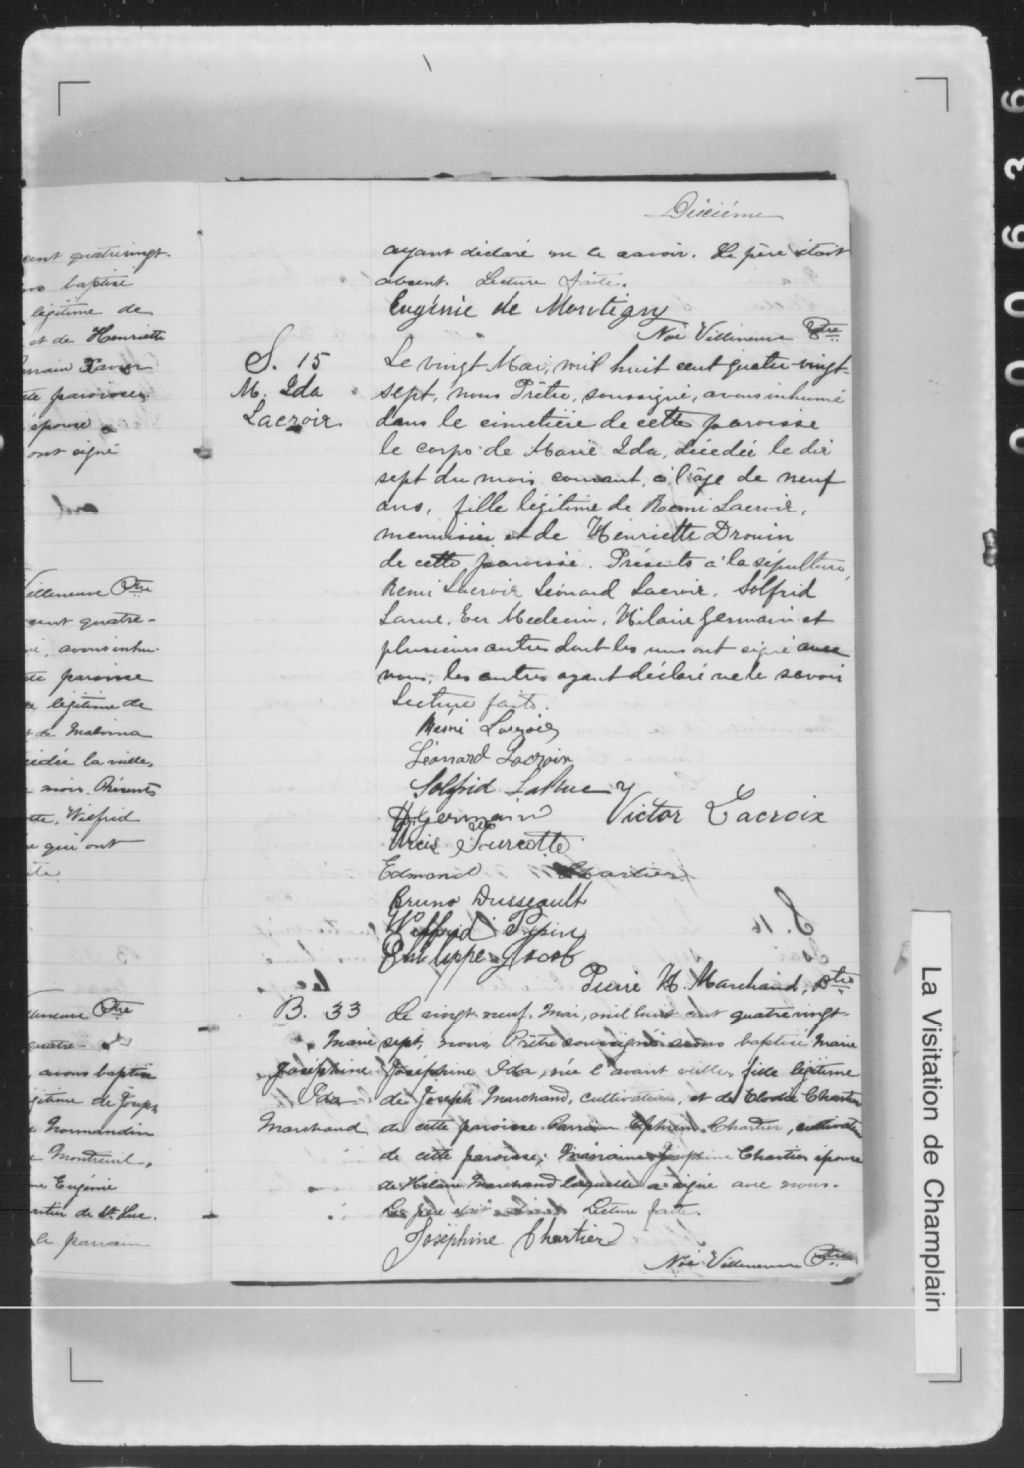 Dixième
ayant déclaré ne le savoir. Le père était
absent. Lecture faite.
Eugénie de Montigny
Noë Villeneuve Ptre
S. 15
M. Ida
Lacroix
Le vingt Mai, mil huit cent quatre-vingt
sept, nous Prêtre, soussigné, avons inhumé
dans le cimetière de cette paroisse
le corps de Marie Ida, décédée le dix
sept du mois courant, à l'âge de neuf
ans, fille légitime de Rémi Lacroix,
menuisier et de Henriette Drouin
de cette paroisse. Présents à la sépulture,
Rémi Lacroix Léonard Lacroix, Solfrid
Larue, Ecr Medecin, Hilaire Germain et
plusieurs autres dont les uns ont signé avec
nous, les autres ayant déclaré ne le savoir
Lecture faite.
Rémi Lacroix
Léonard Lacroix
Solfrid LaRue
H. Germain Victor Lacroix
Turcotte
Edmond Chartier
Bruno Dusseault
Wilfrid Pépin
Philippe Jacob
Pierre H. Marchand, Ptre
B. 33
Marie
Joséphine
Ida
Marchand
Le vingt-neuf, Mai, mil huit cent quatre vingt
sept, nous Prêtre soussigné avons baptisé Marie
Joséphine Ida, née l'avant veille, fille légitime
de Joseph Marchand, cultivateur, et de Elodie Chartier
de cette paroisse. Parrain Ephrem Chartier, cultivateur
de cette paroisse; Marraine Joséphine Chartier épouse
de Hilaire Marchand laquelle a signé avec nous.
Le père était Lecture faite.
Joséphine Chartier
Noë Villeneuve Ptre
cent quatrevingt-
baptisé
légitime de
et de Henriette
paroisse
épouse
ont signé
Villeneuve Ptre
cent quatre-
avons inhu-
paroisse
légitime de
de Malvina
décédée la veille,
mois. Présents
Wilfrid
qui ont
Villeneuve Ptre
quatre-
avons baptisé
légitime de Joseph
Normandin
Montreuil,
Eugénie
de St. Luc.
le parrain
La Visitation de Champlain
000636